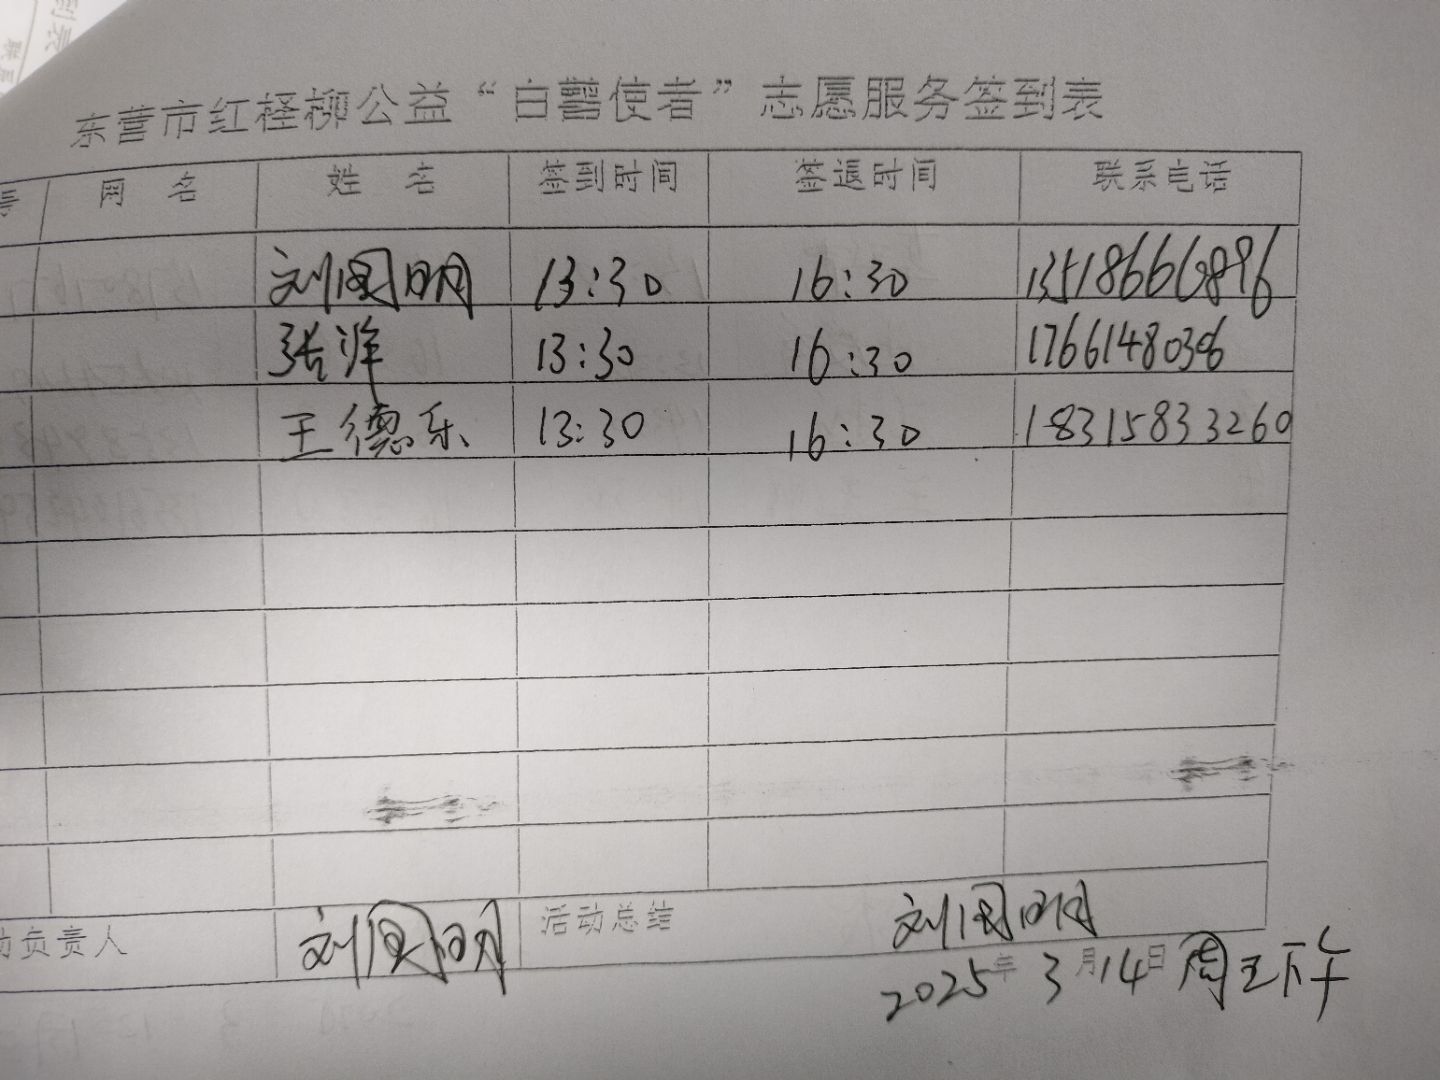 东营市红柽柳公益“白鹭使者”志愿服务签到表
网 名 姓 名 签到时间 签退时间 联系电话
刘国明 13:30 16:30 13518666896
张洋 13:30 16:30 17661480306
王德乐 13:30 16:30 18315833260
负责人 刘国明 活动总结 刘国明
2025年3月14日 周五下午